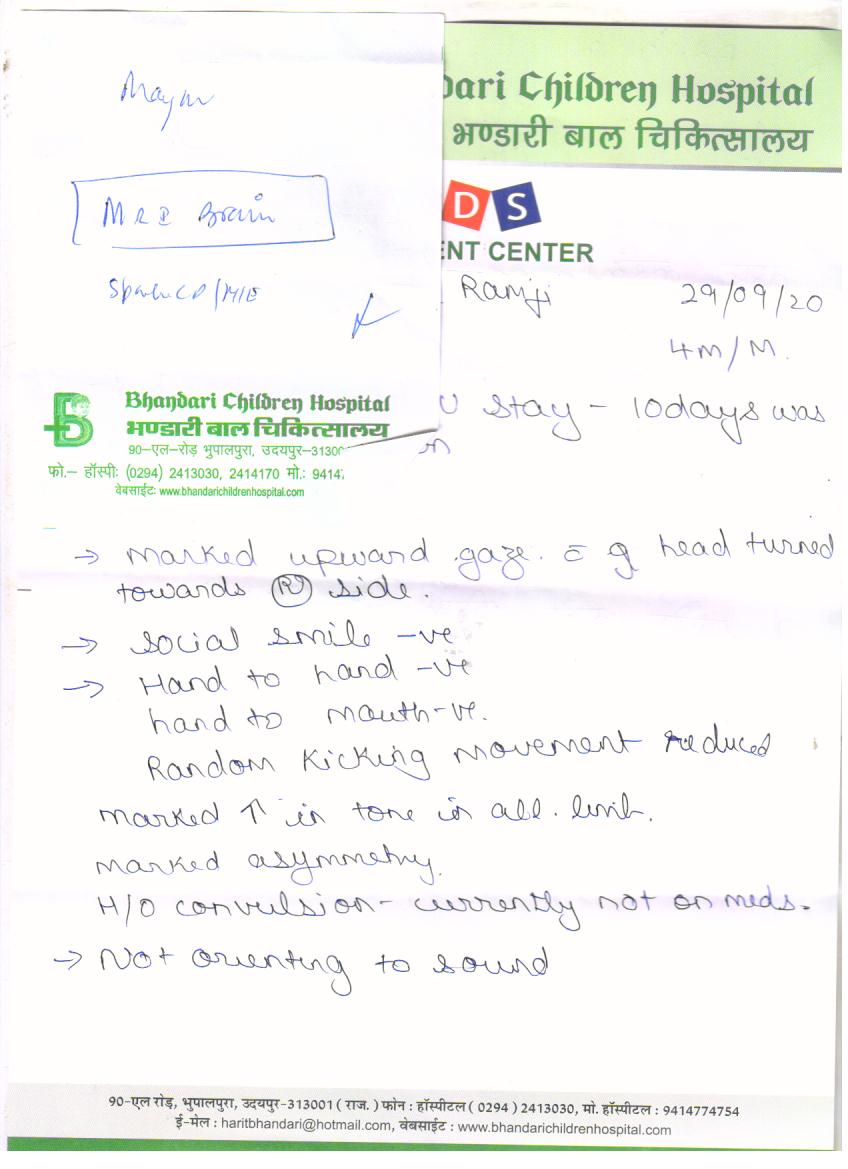 Mayur
MRI Brain
Spastic CP/MIE
Bhandari Children Hospital
भण्डारी बाल चिकित्सालय
90-एल-रोड़ भुपालपुरा, उदयपुर-3130
फो.– हॉस्पीः (0294) 2413030, 2414170 मो.: 9414
वेबसाईटः www.bhandarichildrenhospital.com
dari Children Hospital
भण्डारी बाल चिकित्सालय
D S
ENT CENTER
Ramji 29/09/20
4m/M.
U stay – 10days was
→ marked upward gaze. c̄ head turned
towards (Rt) side.
→ social smile -ve
→ Hand to hand -ve
hand to mouth-ve.
Random kicking movement reduced
marked ↑ in tone in all. limb.
marked asymmetry.
H/O convulsion – currently not on meds.
→ Not orienting to sound
90-एल रोड़, भुपालपुरा, उदयपुर-313001 ( राज. ) फोन : हॉस्पीटल ( 0294 ) 2413030, मो. हॉस्पीटल : 9414774754
ई-मेल : haritbhandari@hotmail.com, वेबसाईट : www.bhandarichildrenhospital.com